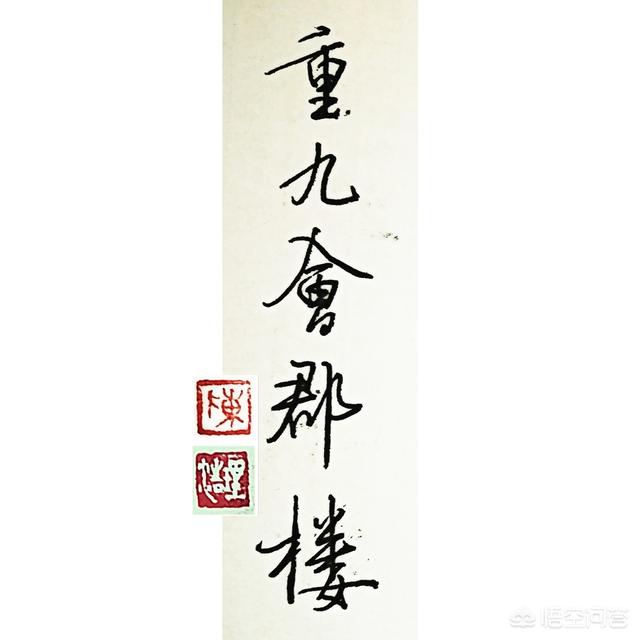 重九會郡楼
陳
悟空问答